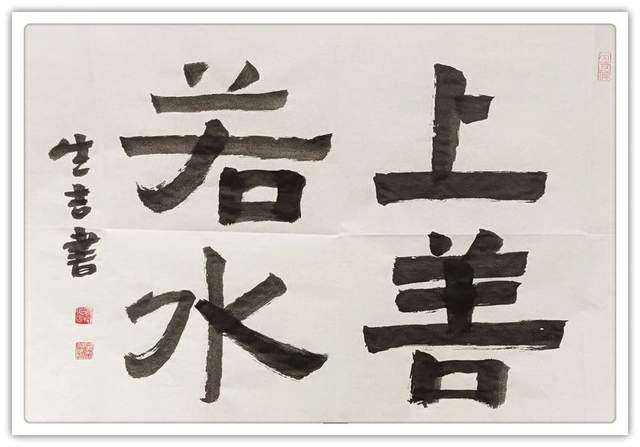 上善
若水
生吉書